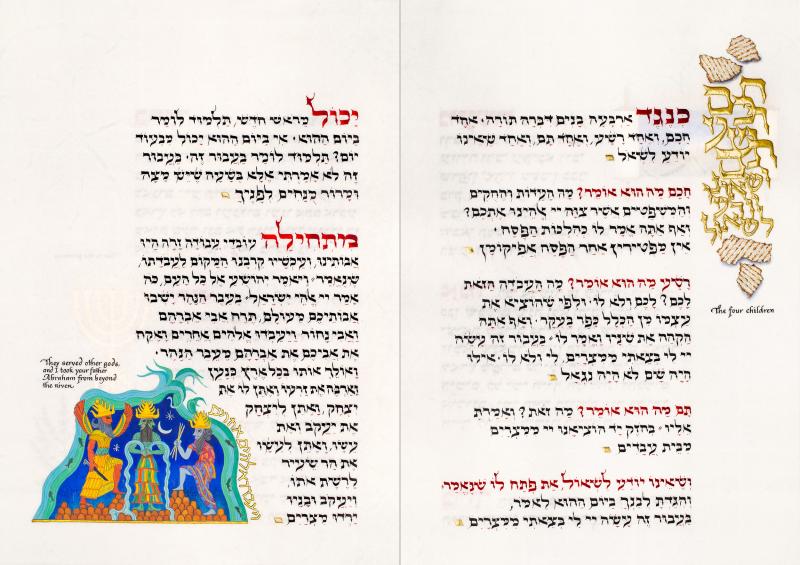 כנגד ארבעה בנים דברה תורה· אחד
חכם, ואחד רשע, ואחד תם, ואחד שאינו
יודע לשאל
חכם מה הוא אומר? מה העדות והחקים
והמשפטים אשר צוה יי אלהינו אתכם?
ואף אתה אמר לו כהלכות הפסח·
אין מפטירין אחר הפסח אפיקומן
רשע מה הוא אומר? מה העבדה הזאת
לכם? לכם ולא לו· ולפי שהוציא את
עצמו מן הכלל כפר בעקר· ואף אתה
הקהה את שניו ואמר לו· בעבור זה עשה
יי לי בצאתי ממצרים, לי ולא לו· אילו
היה שם לא היה נגאל
תם מה הוא אומר? מה זאת? ואמרת
אליו· בחזק יד הוציאנו יי ממצרים
מבית עבדים
ושאינו יודע לשאול את פתח לו שנאמר·
והגדת לבנך ביום ההוא לאמר,
בעבור זה עשה יי לי בצאתי ממצרים
The four children
יכול מראש חדש, תלמוד לומר
ביום ההוא· אי ביום ההוא יכול מבעוד
יום? תלמוד לומר בעבור זה· בעבור
זה לא אמרתי אלא בשעה שיש מצה
ומרור מנחים לפניך
מתחילה עובדי עבודה זרה היו
אבותינו, ועכשיו קרבנו המקום לעבדתו,
שנאמר· ויאמר יהושע אל כל העם, כה
אמר יי אלהי ישראל· בעבר הנהר ישבו
אבותיכם מעולם, תרח אבי אברהם
ואבי נחור ויעבדו אלהים אחרים ואקח
את אביכם את אברהם מעבר הנהר·
ואולך אותו בכל ארץ כנען
וארבה את זרעו ואתן לו את
יצחק, ואתן ליצחק
את יעקב ואת
עשו, ואתן לעשו
את הר שעיר
לרשת אתו,
ויעקב ובניו
ירדו מצרים
They served other gods,
and I took your father
Abraham from beyond
the river.